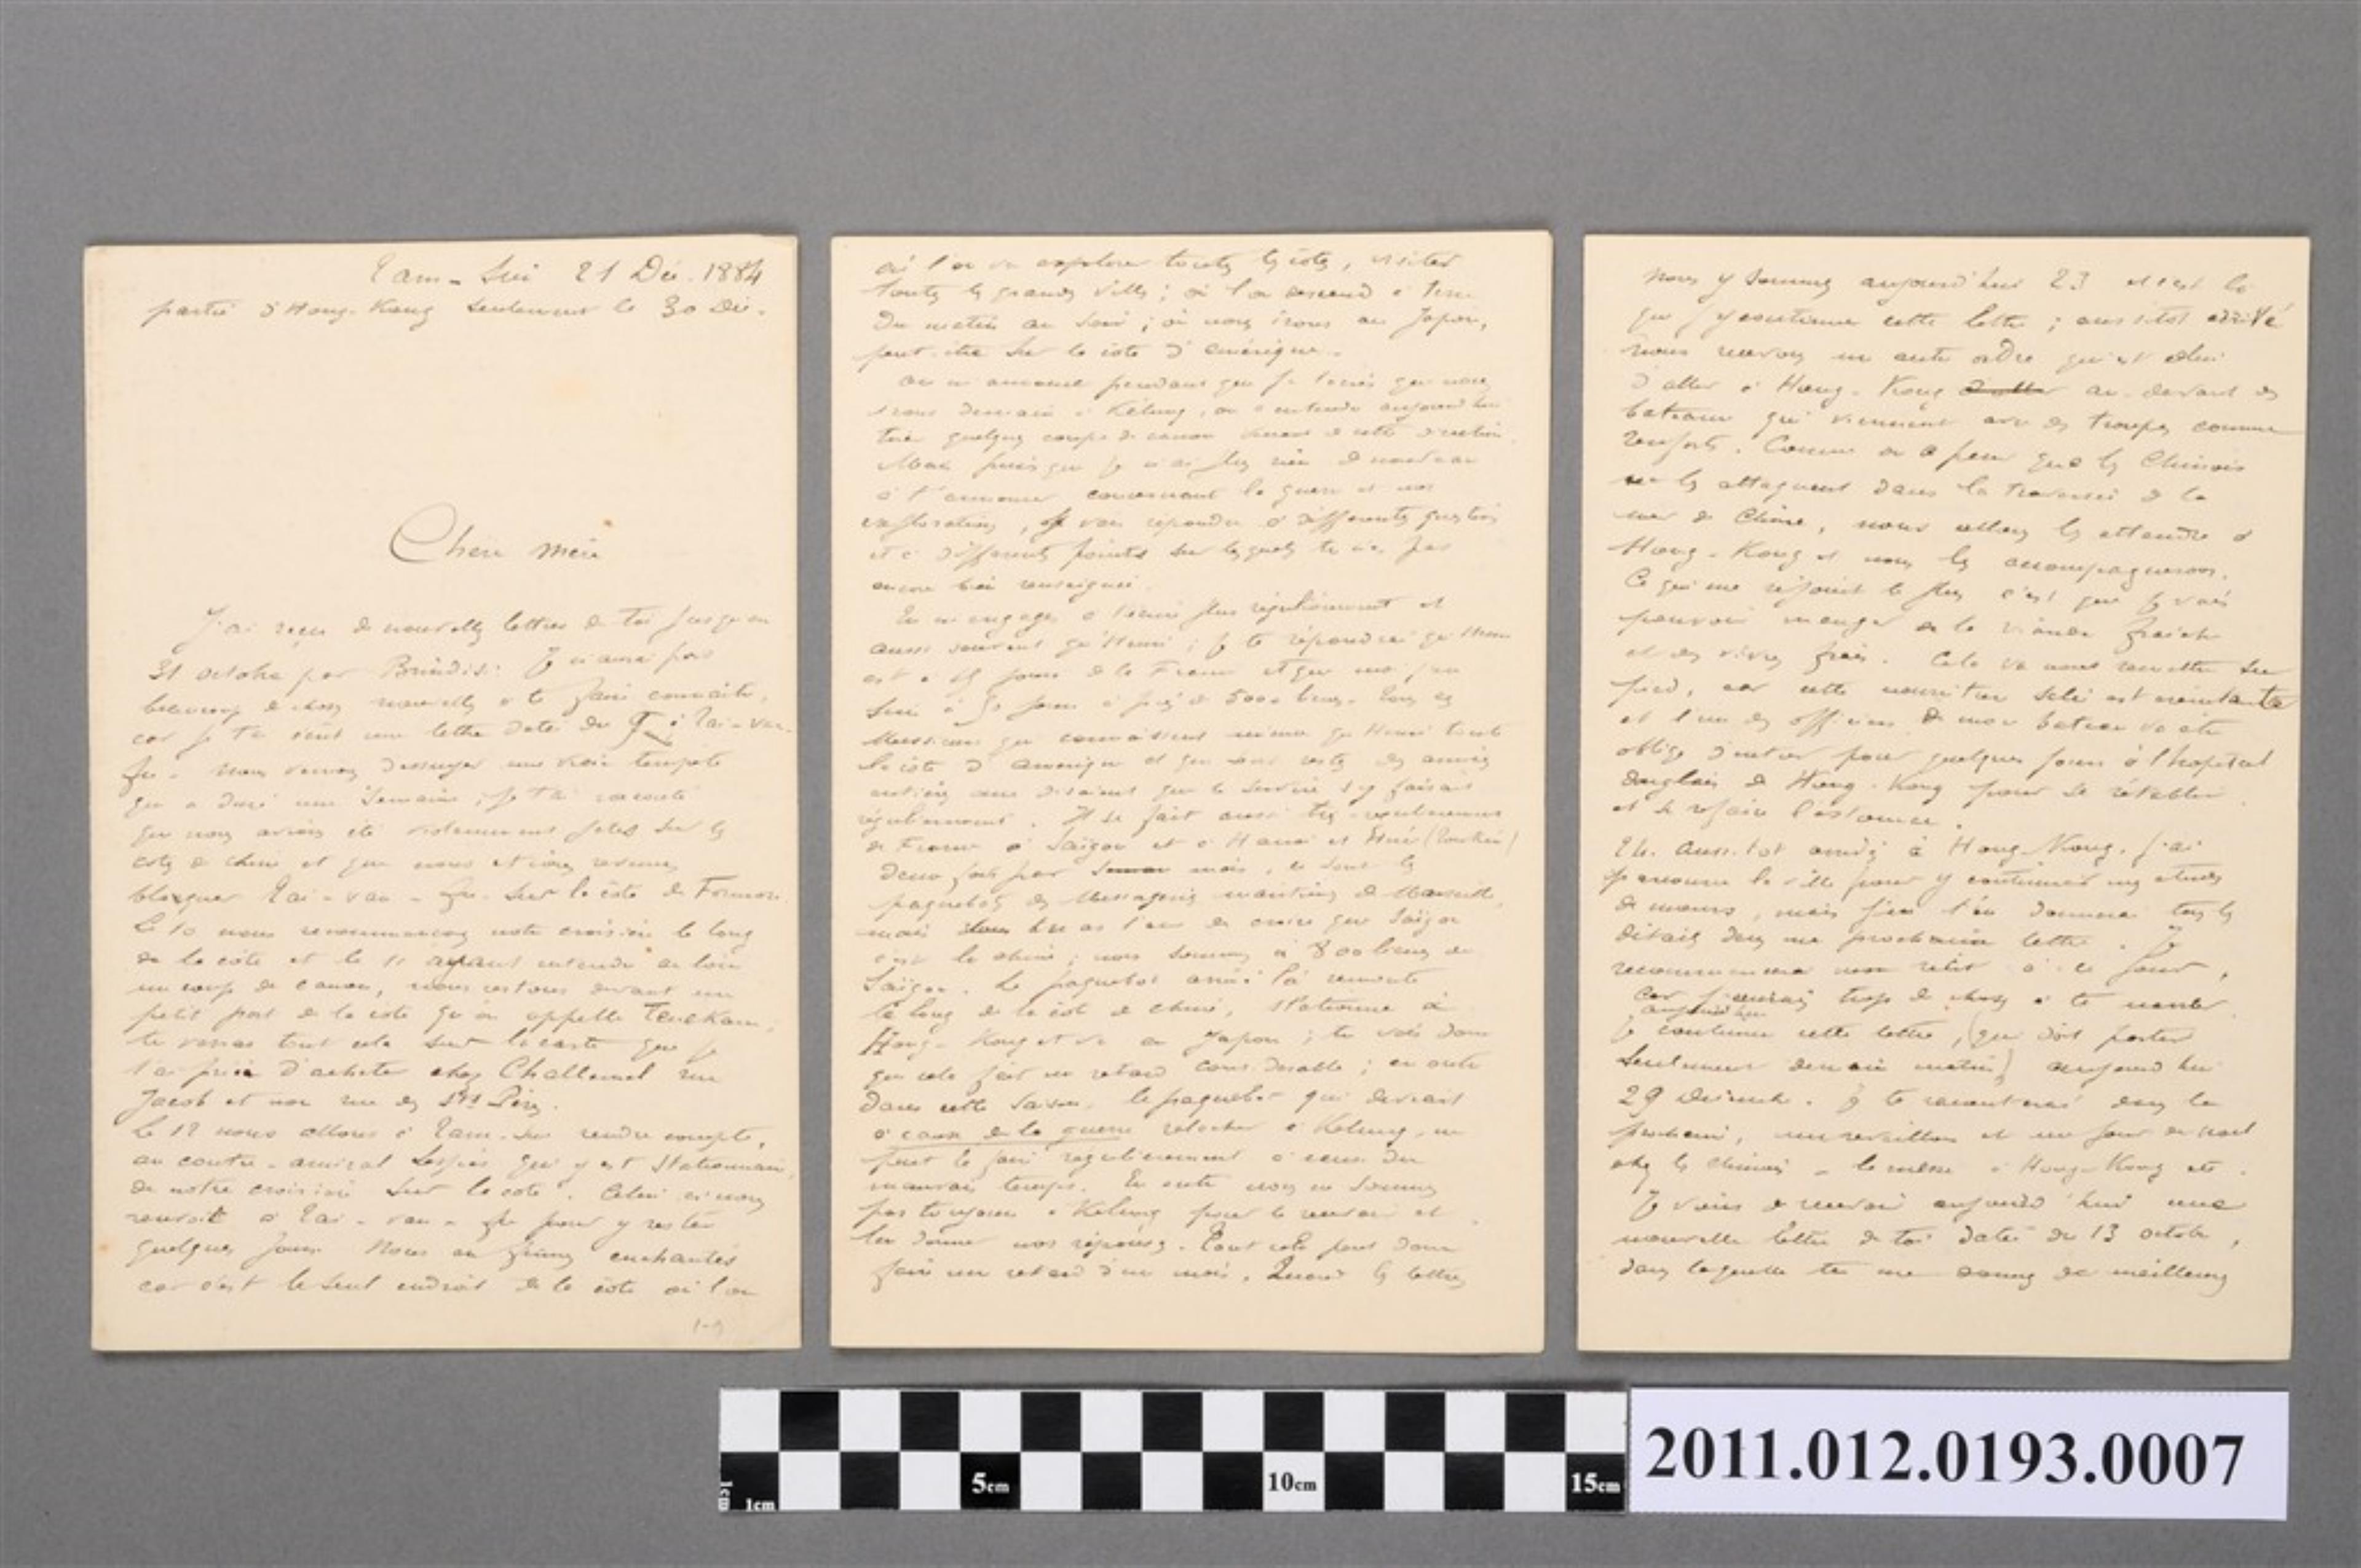 Tam-Sui 21 Déc. 1884
partie d'Hong-Kong seulement le 30 Déc.
Chère mère
J'ai reçu de nouvelles lettres de toi jusqu'au
31 octobre par Brindisi. Je n'aurai pas
beaucoup de choses nouvelles à te faire connaître,
car je t'ai écrit une lettre datée du 9 à Tai-van-
fu. Nous venons d'essuyer une vraie tempête
qui a duré une semaine; je t'ai raconté
que nous avions été violemment jetés sur les
côtes de Chine et que nous étions revenus
bloquer Tai-van-fu sur la côte de Formose.
Le 10 nous recommençons notre croisière le long
de la côte et le 11 ayant entendu au loin
un coup de canon, nous restons devant un
petit port de la côte qu'on appelle
tu verras tout cela sur la carte que je
t'ai prié d'acheter chez Challamel rue
Jacob et non rue des Sts Pères.
Le 12 nous allons à Tam-Sui rendre compte,
au contre-amiral Lespès qui y est stationnaire,
de notre croisière sur la côte. Celui-ci nous
renvoit à Tai-van-fu pour y rester
quelques jours. Nous en fûmes enchantés
car c'est le seul endroit de la côte où l'on
1-9
où l'on va explorer toutes les côtes, visiter
toutes les grandes villes; où l'on descend à terre
du matin au soir; où nous irons au Japon,
peut-être sur la côte d'Amérique.
On m'annonce pendant que je t'écris que nous
irons demain à Kélung, on a entendu aujourd'hui
tirer quelques coups de canon venant de cette direction.
Mais puisque je n'ai plus rien de nouveau
à t'annoncer concernant la guerre et nos
explorations, je vais répondre à différentes questions
et à différents points sur lesquels tu n'es pas
encore bien renseignée.
Tu m'engages à t'écrire plus régulièrement et
aussi souvent qu'Henri; je te répondrai qu'Henri
est à 15 jours de la France et que moi j'en
suis à 50 jours à près de 5000 lieues. Tous ces
Messieurs qui connaissent même qu'Henri toute
la côte d'Amérique et qui sont restés des années
entières me disaient que le service s'y faisait
régulièrement. Il se fait aussi très régulièrement
de France à Saïgon et à Hanoï et Hué (Tonkin)
deux fois par mois, ce sont les
paquebots des Messageries maritimes de Marseille,
mais tu as l'air de croire que Saïgon
c'est la Chine; nous sommes à 800 lieues de
Saïgon. Le paquebot arrivé là remonte
le long de la côte de Chine, stationne à
Hong-Kong et va au Japon; tu vois donc
que cela fait un retard considérable; en outre
dans cette saison, le paquebot qui devrait
à cause de la guerre relâcher à Kélung, ne
peut le faire régulièrement à cause du
mauvais temps. En outre nous ne sommes
pas toujours à Kélung pour le recevoir et
lui donner nos réponses. Tout cela peut donc
faire un retard d'un mois. Quand les lettres
Nous y sommes aujourd'hui 23 et c'est là
que j'y continue cette lettre; aussitôt arrivé
nous recevons un autre ordre qui est celui
d'aller à Hong-Kong d'aller au-devant des
bateaux qui viennent avec des troupes comme
renforts. Comme on a peur que les Chinois
ne les attaquent dans la traversée de la
mer de Chine, nous allons les attendre à
Hong-Kong et nous les accompagnerons.
Ce qui me réjouit le plus c'est que je vais
pouvoir manger de la viande fraîche
et des vivres frais. Cela va nous remettre sur
pied, car cette nourriture salée est éreintante
et l'un des officiers de mon bateau va être
obligé d'entrer pour quelques jours à l'hôpital
anglais de Hong-Kong pour se rétablir
et se refaire l'estomac.
24. Aussitôt arrivés à Hong-Kong, j'ai
parcouru la ville pour y continuer mes études
de mœurs, mais je t'en donnerai tous les
détails dans ma prochaine lettre. Je
recommencerai mon récit à ce jour,
car j'aurais trop de choses à te raconter.
aujourd'hui
Je continue cette lettre, (qui doit partir
seulement demain matin) aujourd'hui
29 Décembre. Je te raconterai dans la
prochaine, un réveillon et un jour de noël
chez les chinois - la messe à Hong-Kong etc.
Je viens de recevoir aujourd'hui une
nouvelle lettre de toi datée du 13 octobre,
dans laquelle tu me donnes de meilleures
1cm
5cm
10cm
15cm
2011.012.0193.0007